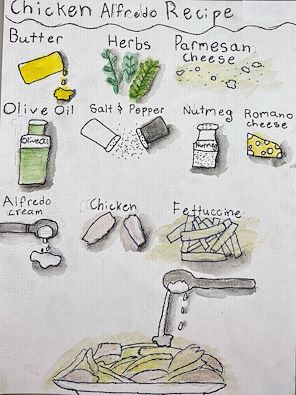 Chicken Alfredo Recipe
Butter
Herbs
Parmesan
cheese
Olive Oil
Salt & Pepper
Nutmeg
Romano
cheese
Olive Oil
Nutmeg
Alfredo
cream
Chicken
Fettuccine